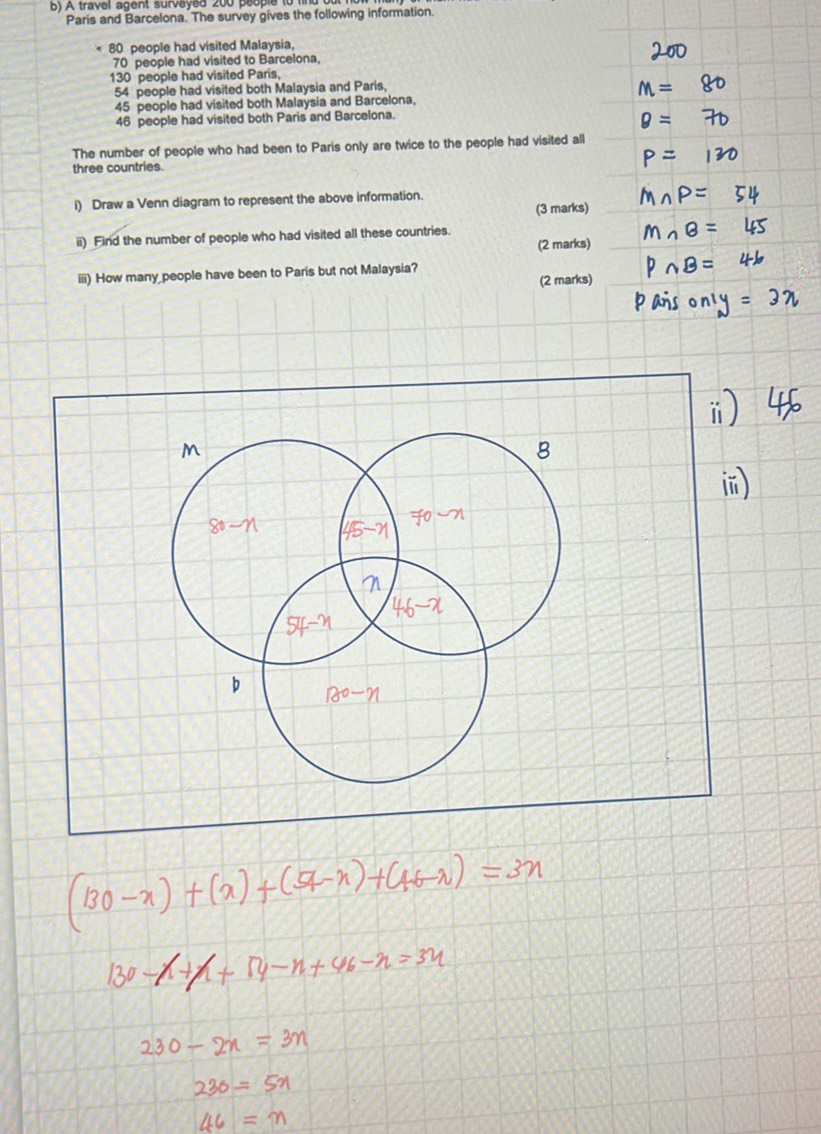 b) A travel agent surveyed 200 people to find out how many of them
Paris and Barcelona. The survey gives the following information.
80 people had visited Malaysia,
70 people had visited to Barcelona,
130 people had visited Paris,
54 people had visited both Malaysia and Paris,
45 people had visited both Malaysia and Barcelona,
46 people had visited both Paris and Barcelona.
The number of people who had been to Paris only are twice to the people had visited all
three countries.
i) Draw a Venn diagram to represent the above information.
(3 marks)
ii) Find the number of people who had visited all these countries.
(2 marks)
iii) How many people have been to Paris but not Malaysia?
(2 marks)
200
M = 80
B = 70
P = 130
M ∩ P = 54
M ∩ B = 45
P ∩ B = 46
Paris only = 3x
ii) 46
iii)
M
B
80-x
45-x
70-x
x
54-x
46-x
P
130-x
(130-x)+(x)+(54-x)+(46-x) = 3x
130-x+x+54-x+46-x=3x
230-2x = 3x
230 = 5x
46 = x